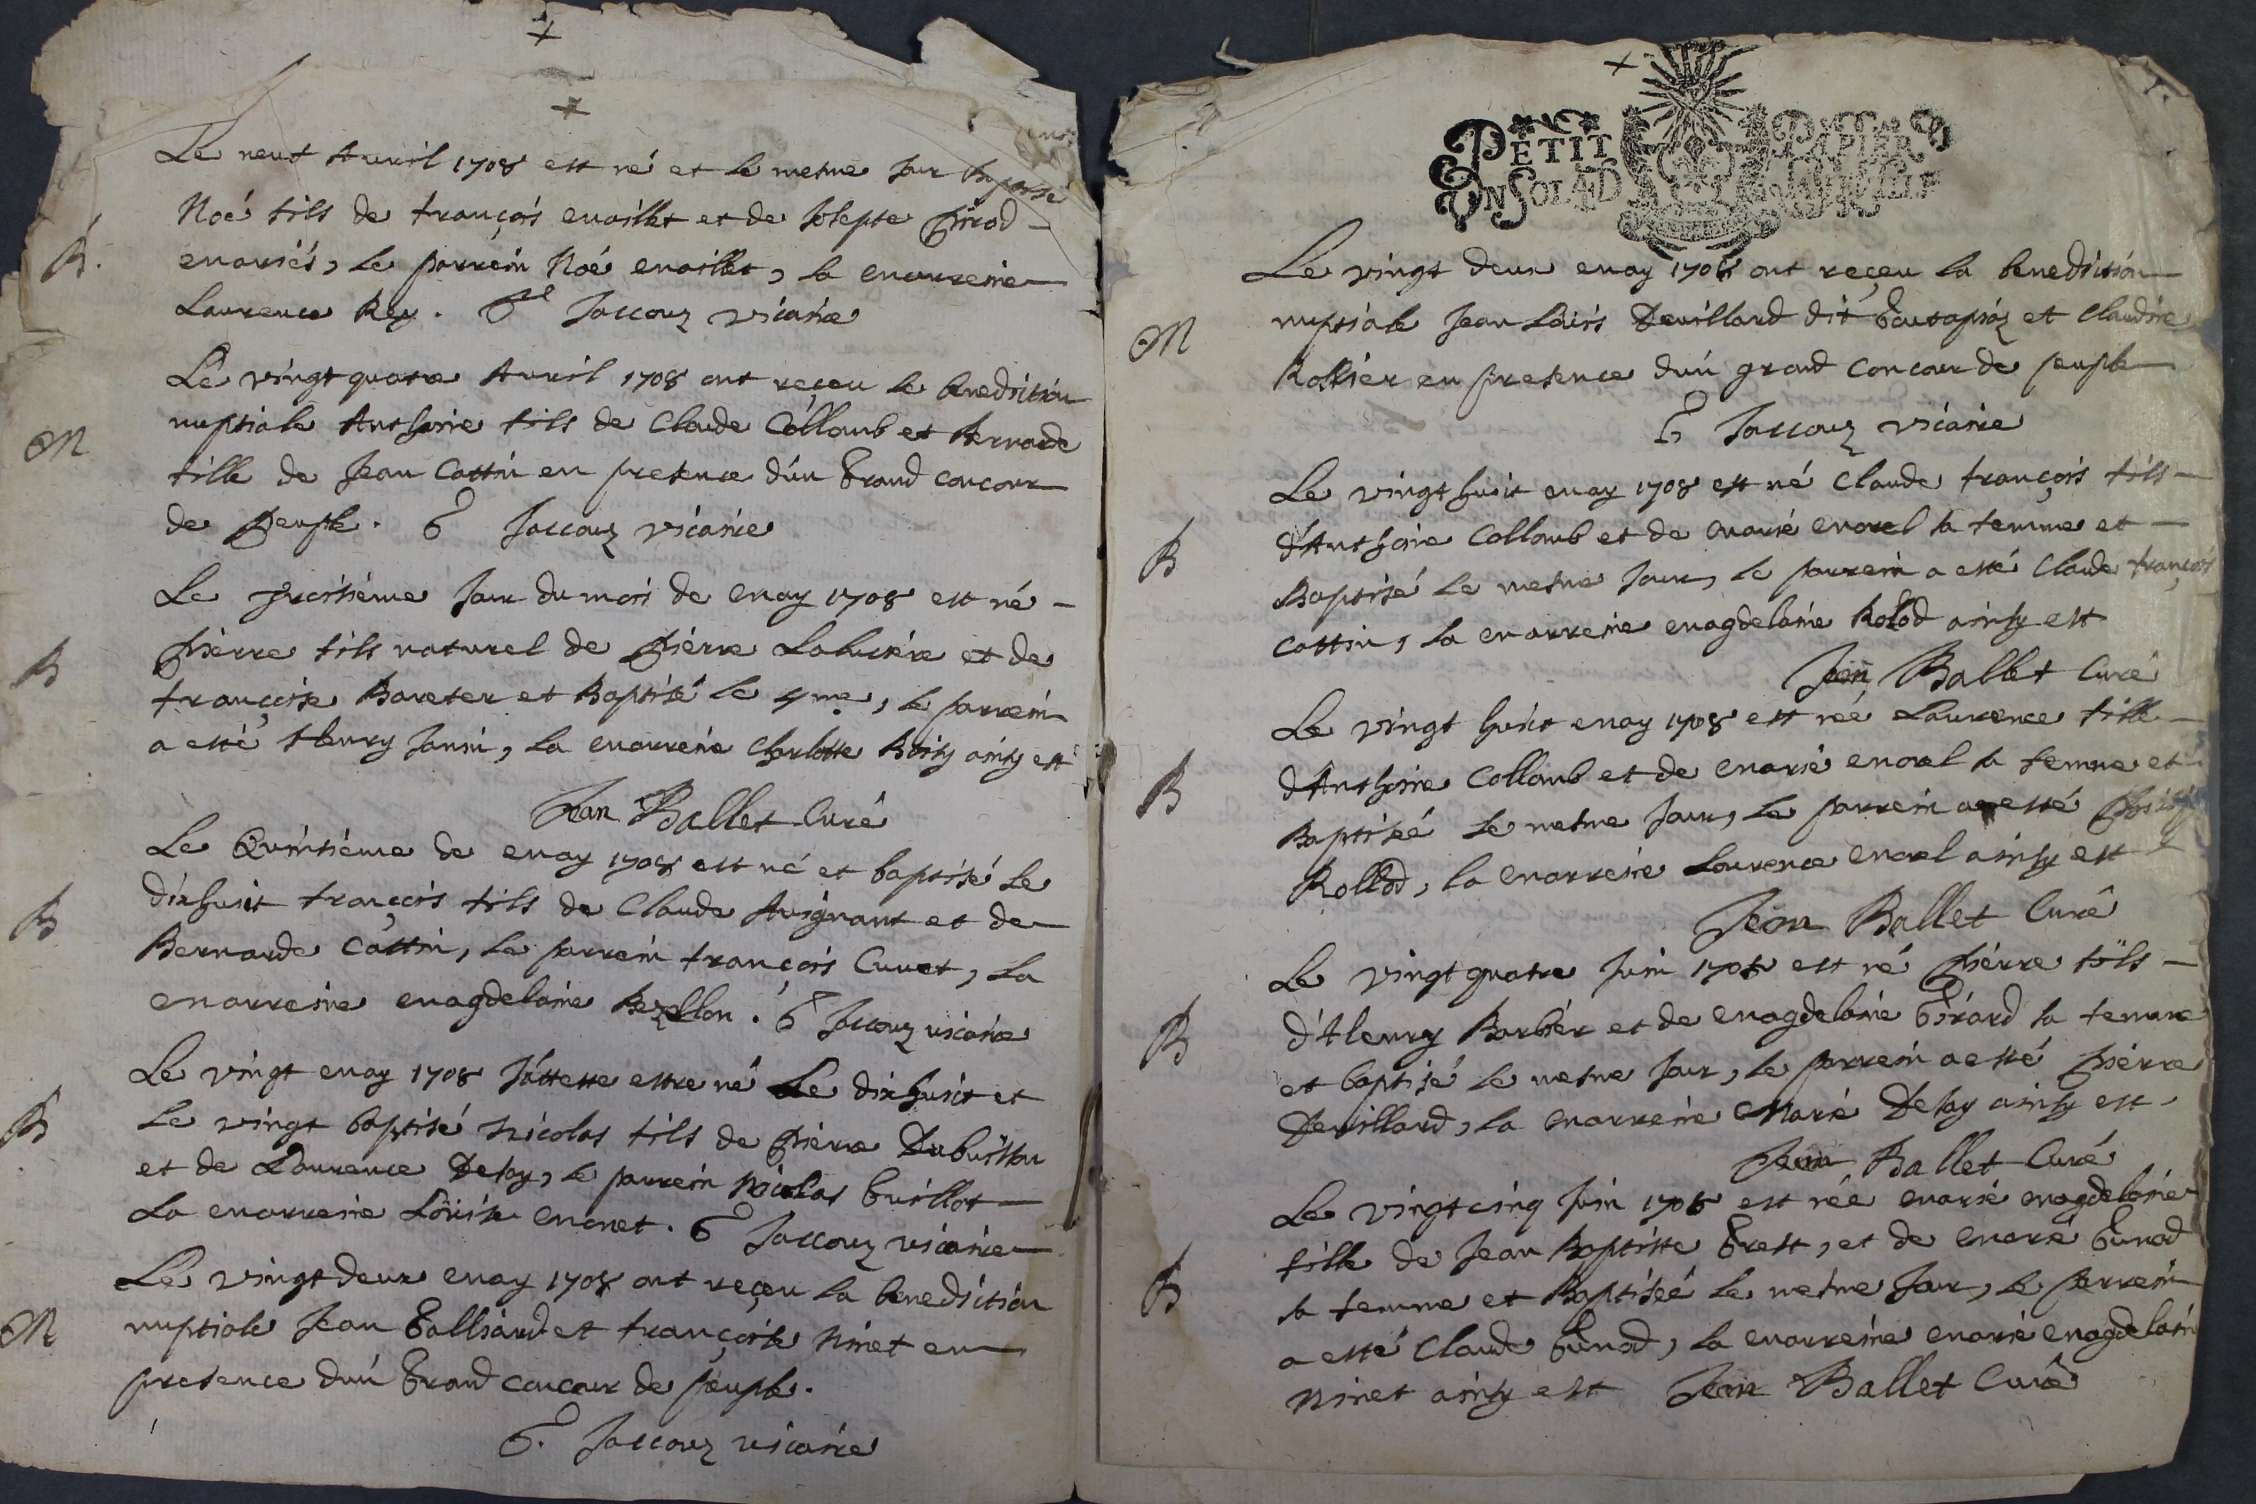 Le neuf Avril 1708 est né et le mesme Jour
Noé fils de françois maillet et de Josepte Girod
B.
mariés, le parrein Noé maillet, la marreine
Laurence Rey. Jaccouz vicaire
Le vingt quatre Avril 1708 ont reçeu le benediction
nuptiale Anthoine fils de Claude Colloub et Bernarde
M
fille de Jean Cottin en presence d'un Grand concour
de Peuple. G Jaccouz vicaire
Le troisiéme Jour du mois de may 1708 est né
Pierre fils naturel de Piérre et de
B
françoise et Baptisé le 4me, le parrein
a esté Henry Janin, la marreine Charlotte ainsy est
Jean Ballet Curé
Le Quinsiéme de may 1708 est né et baptisé le
dixhuit françois fils de Claude Avignant et de
B
Bernarde Cottin, le parrein françois Curvet, la
marreine magdelaine Bezellon. G Jaccouz vicaire
Le vingt may 1708 J'atteste estre né Le dixhuit et
B
le vingt baptisé Nicolas fils de Piérre Dubuisson
et de Laurence Desay, le parrein Nicolas Guillot
La marreine Loüise monet. G Jaccouz vicaire
Le vingt deux may 1708 ont reçeu la benediction
M
nuptiale Jean Galliard et françoise Ninet en
presence d'un Grand concour de peuple.
G. Jaccouz vicaire
PETIT PAPIER
EN SOL 4 D
Le vingt deux may 1708 ont reçeu la benediction
M
nuptiale Jean Loüis Devillard dit et Claudine
Rollier en presence d'un grand concour de peuple
G Jaccouz vicaire
Le vingt huit may 1708 est né Claude françois fils
d'Anthoine Colloub et de marie morel sa femme et
B
Baptisé le mesme Jour, le parrein a esté Claude françois
Cottin, la marreine magdelaine Rolod ainsy est
Jean Ballet Curé
Le vingt huit may 1708 est née Laurence fille
d'Anthoine Colloub et de marie morel sa femme et
B
Baptiséé le mesme Jour, le parrein a esté
Rollod, la marreine Laurence morel ainsy est
Jean Ballet Curé
Le vingt quatre Juin 1708 est né Piérre fils
d'Henry Barbier et de magdelaine Girard sa femme
B
et baptisé le mesme Jour, le parrein a esté Piérre
Devillard, la marreine Marie Desay ainsy est
Jean Ballet Curé
Le vingt cinq Juin 1708 est née marie magdelaine
fille de Jean Baptiste Grest, et de marie Gunod
B
sa femme et Baptiséé le mesme Jour, le parrein
a esté Claude Gunod, la marreine marie magdelaine
Ninet ainsy est Jean Ballet Curé